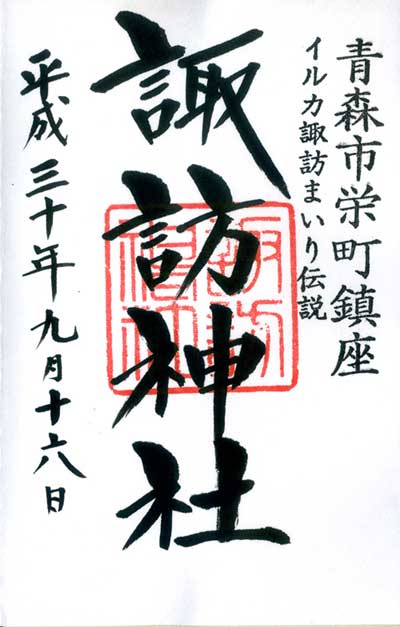 青森市栄町鎮座
イルカ諏訪まいり伝説
諏訪神社
平成三十年九月十六日